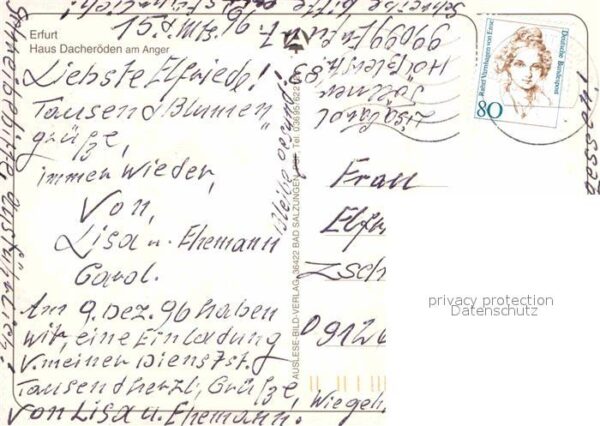 Erfurt
Haus Dacheröden am Anger
15. d. Mts. 96
Liebste Elfriede!
Tausend Blumen
grüße,
immer wieder,
Von,
Lisa u. Ehemann
Carol.
Am 9. Dez. 96 haben
wir, eine Einladung
v. meiner Dienstst.
Tausend herzl. Grüße,
von Lisa u. Ehemann.
Bleibe gesund!
Schreibe bitte
99099 Erfurt
AUSLESE-BILD-VERLAG, 36422 BAD SALZUNGEN
Rahel Varnhagen von Ense
Deutsche Bundespost
80
Frau
Elfr
Zsch
0912
Wie geh
privacy protection
Datenschutz